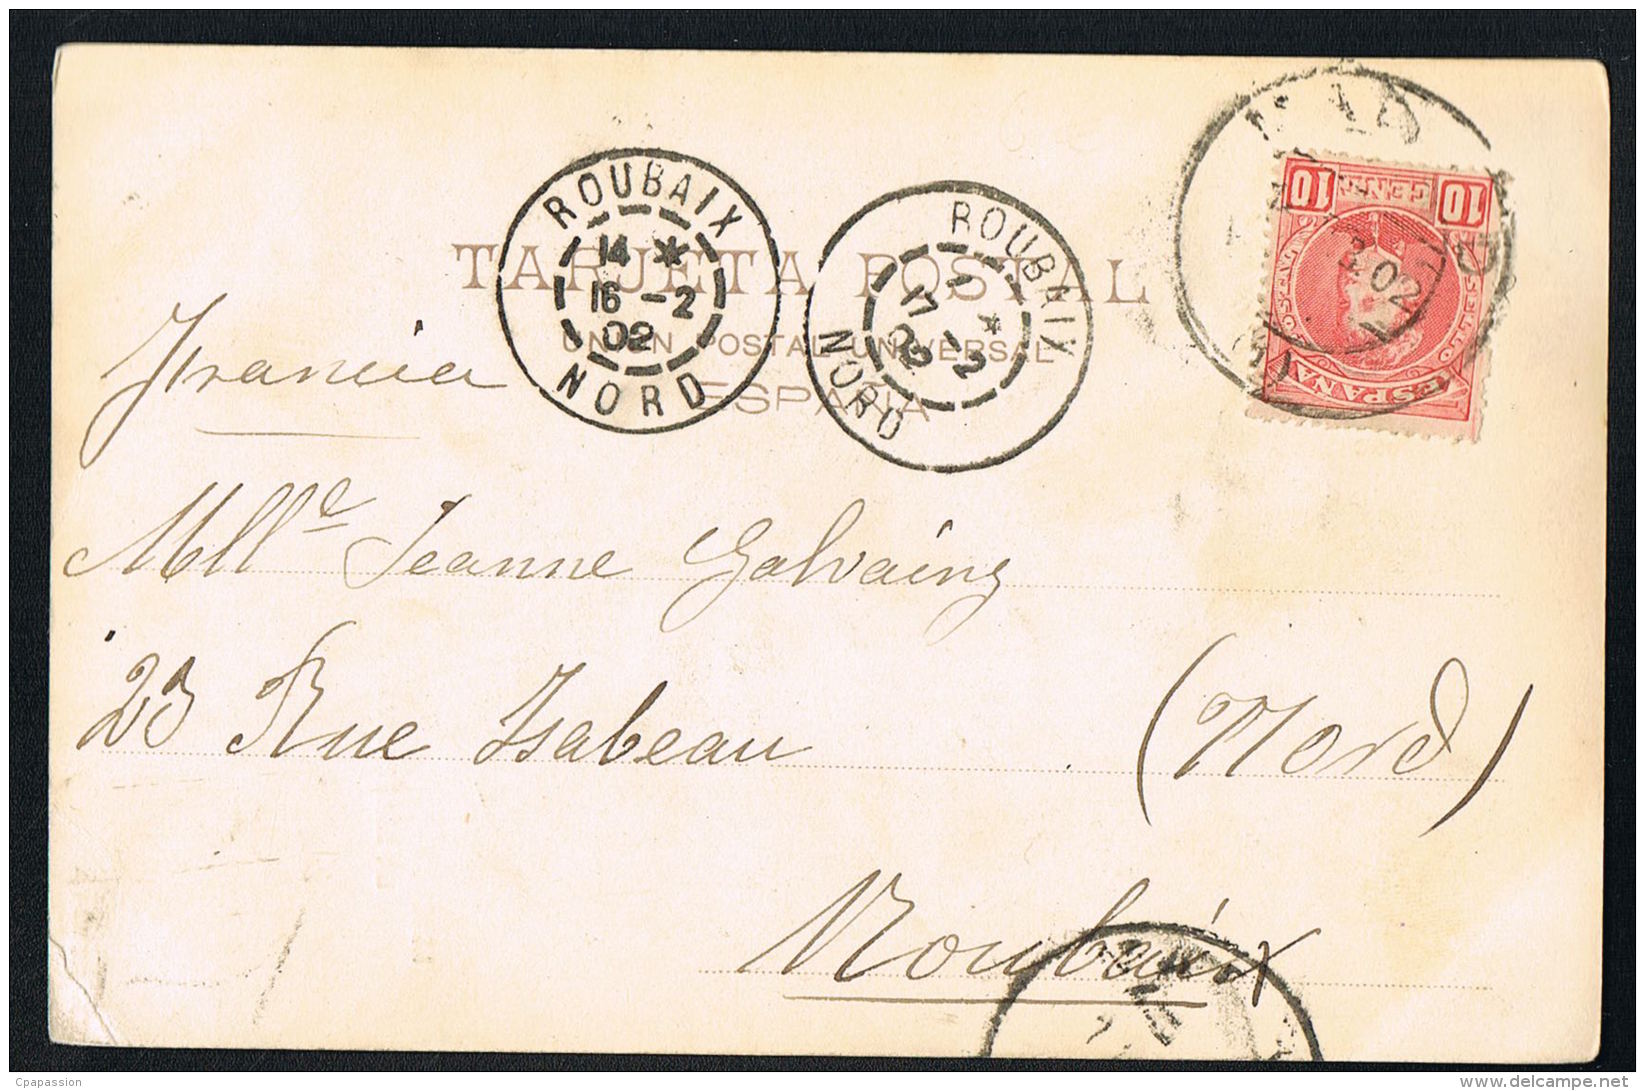 TARJETA POSTAL
UNION POSTAL UNIVERSAL
ESPAÑA
ROUBAIX
14 *
16 - 2
02
NORD
ROUBAIX
*
17 - 2
02
NORD
10 CENT 10
SELLO
ESPAÑA
02
Francia
Mlle Jeanne Galvaing
23 Rue Isabeau (Nord)
Roubaix
Cpapassion
www.delcampe.net